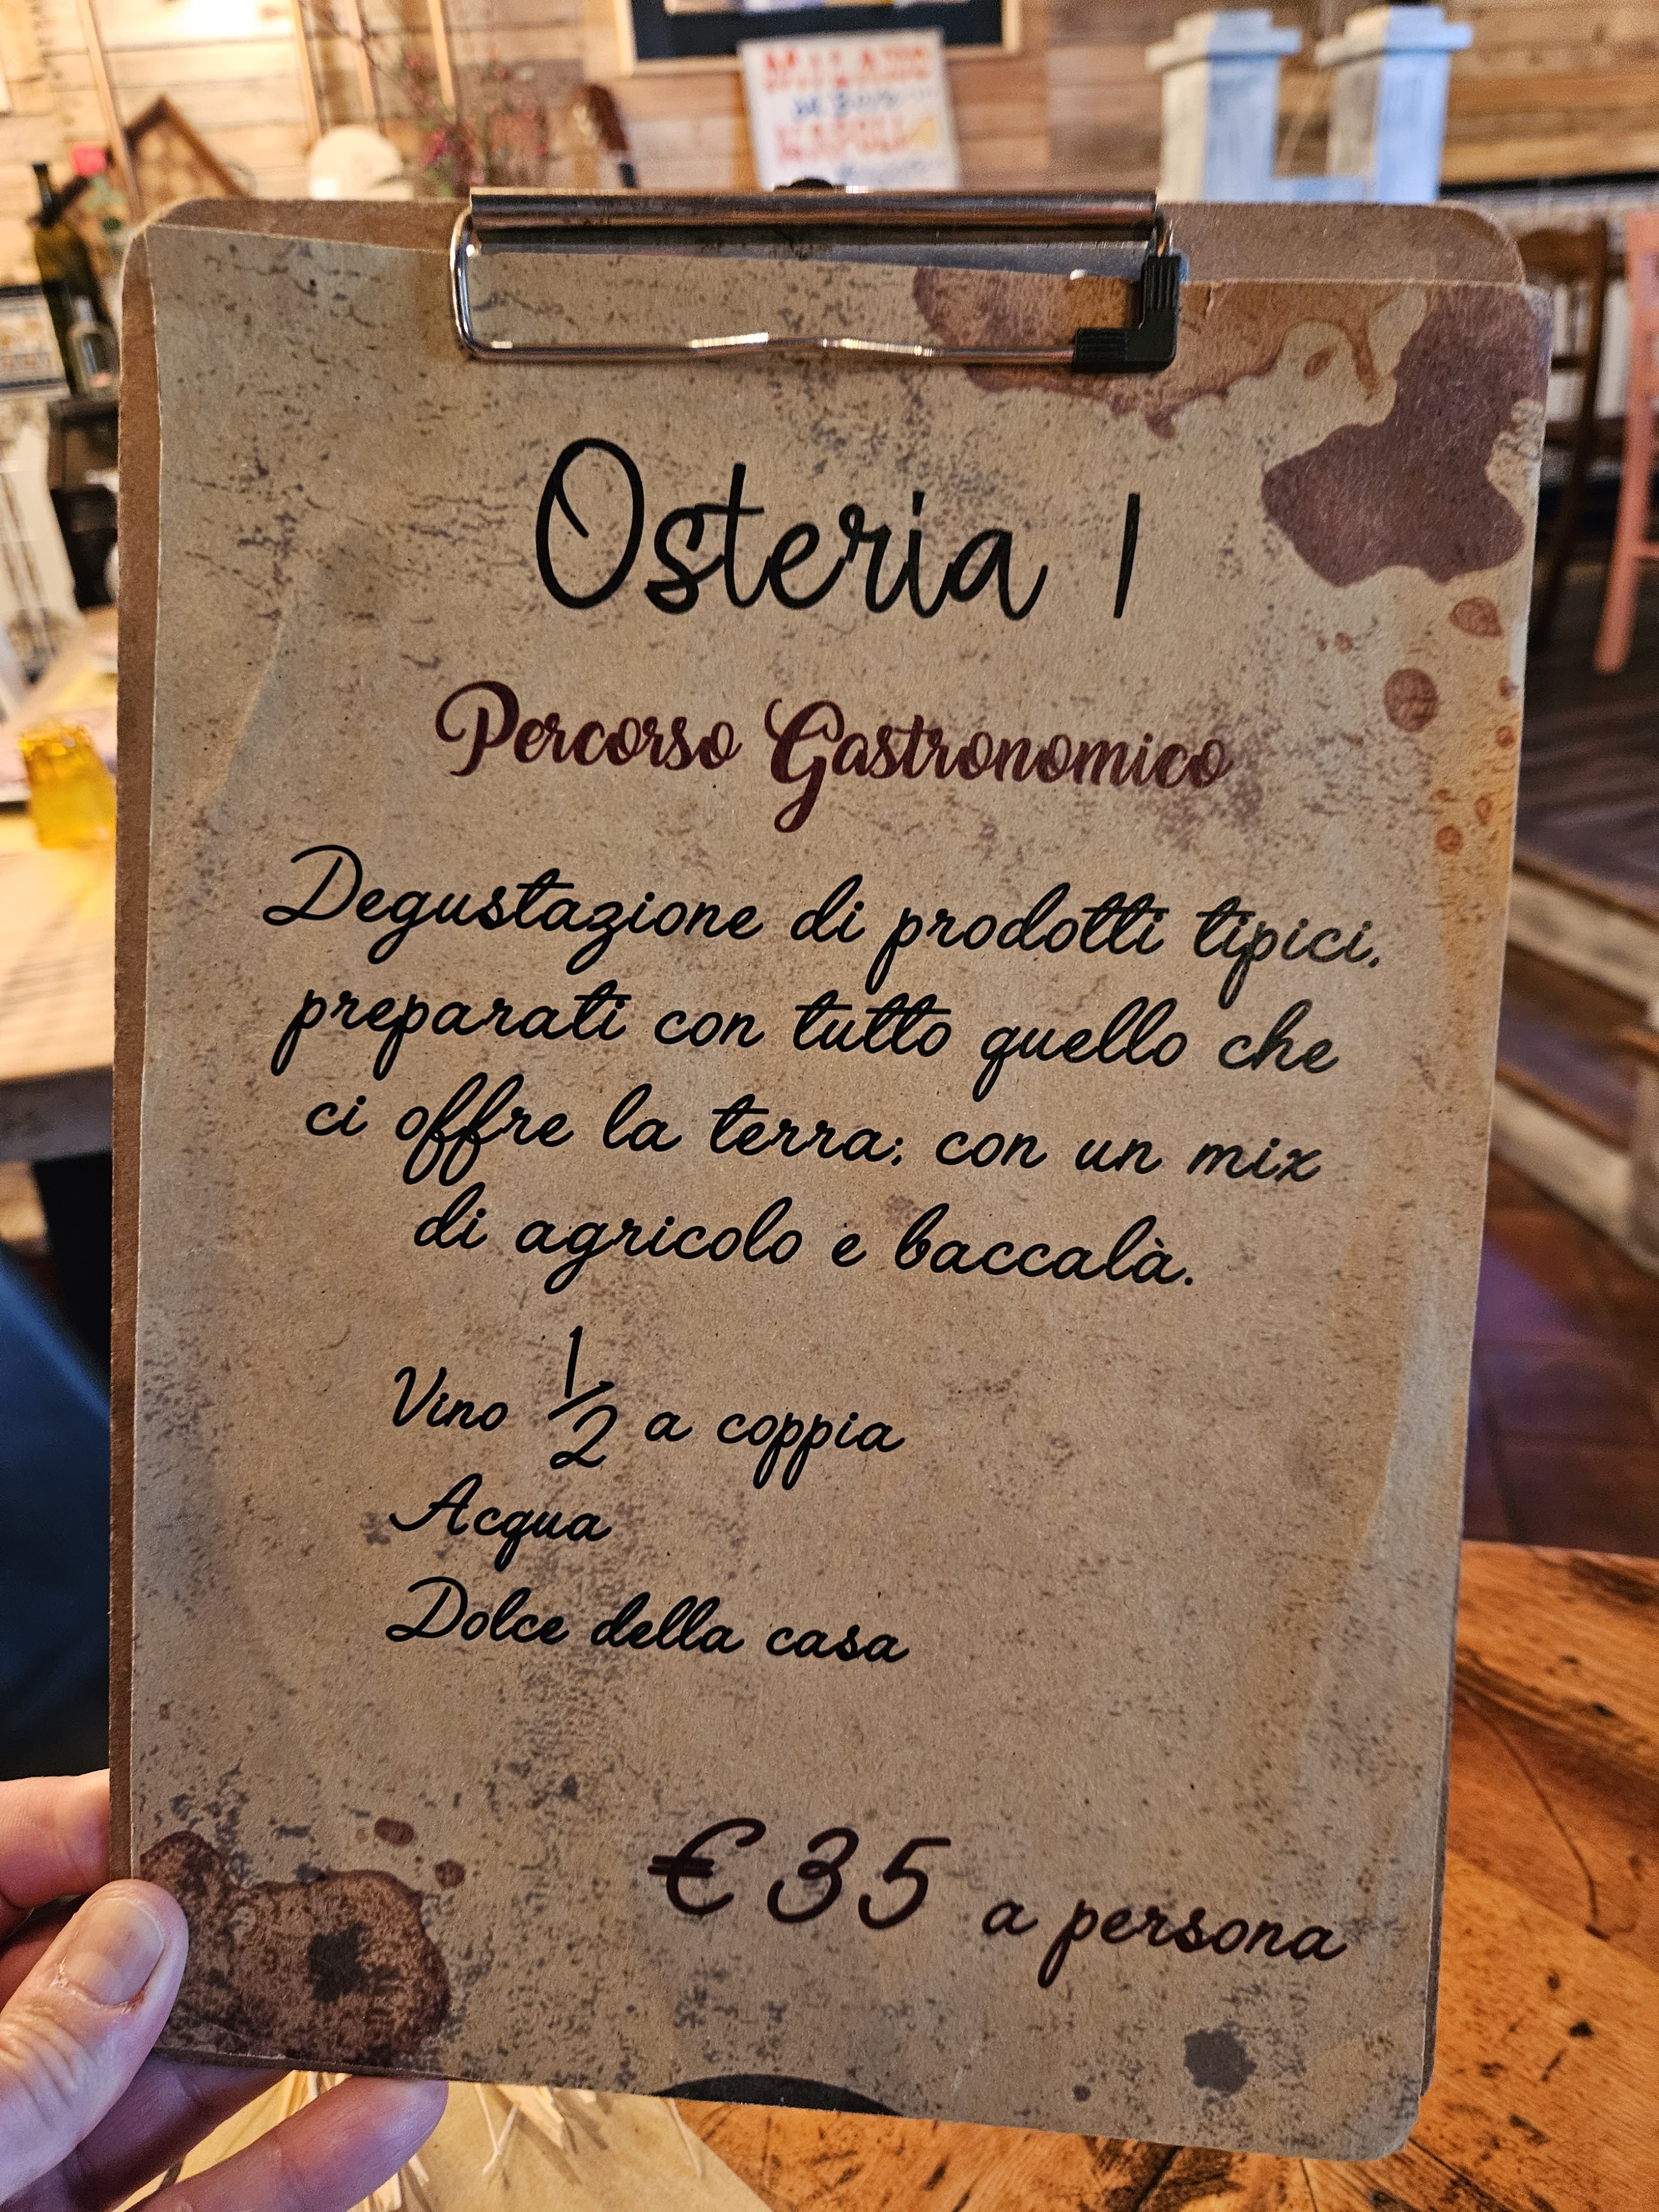 NAPOLI
Osteria 1
Percorso Gastronomico
Degustazione di prodotti tipici,
preparati con tutto quello che
ci offre la terra; con un mix
di agricolo e baccalà.
Vino 1/2 a coppia
Acqua
Dolce della casa
€35 a persona